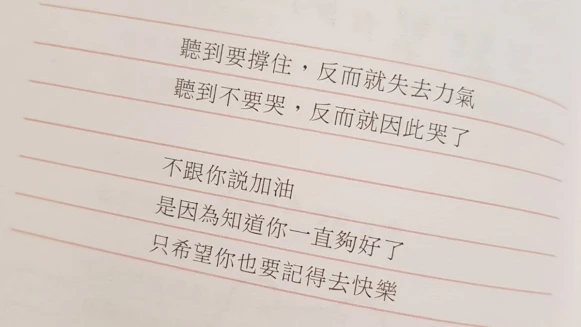 聽到要撐住，反而就失去力氣
聽到不要哭，反而就因此哭了
不跟你說加油
是因為知道你一直夠好了
只希望你也要記得去快樂